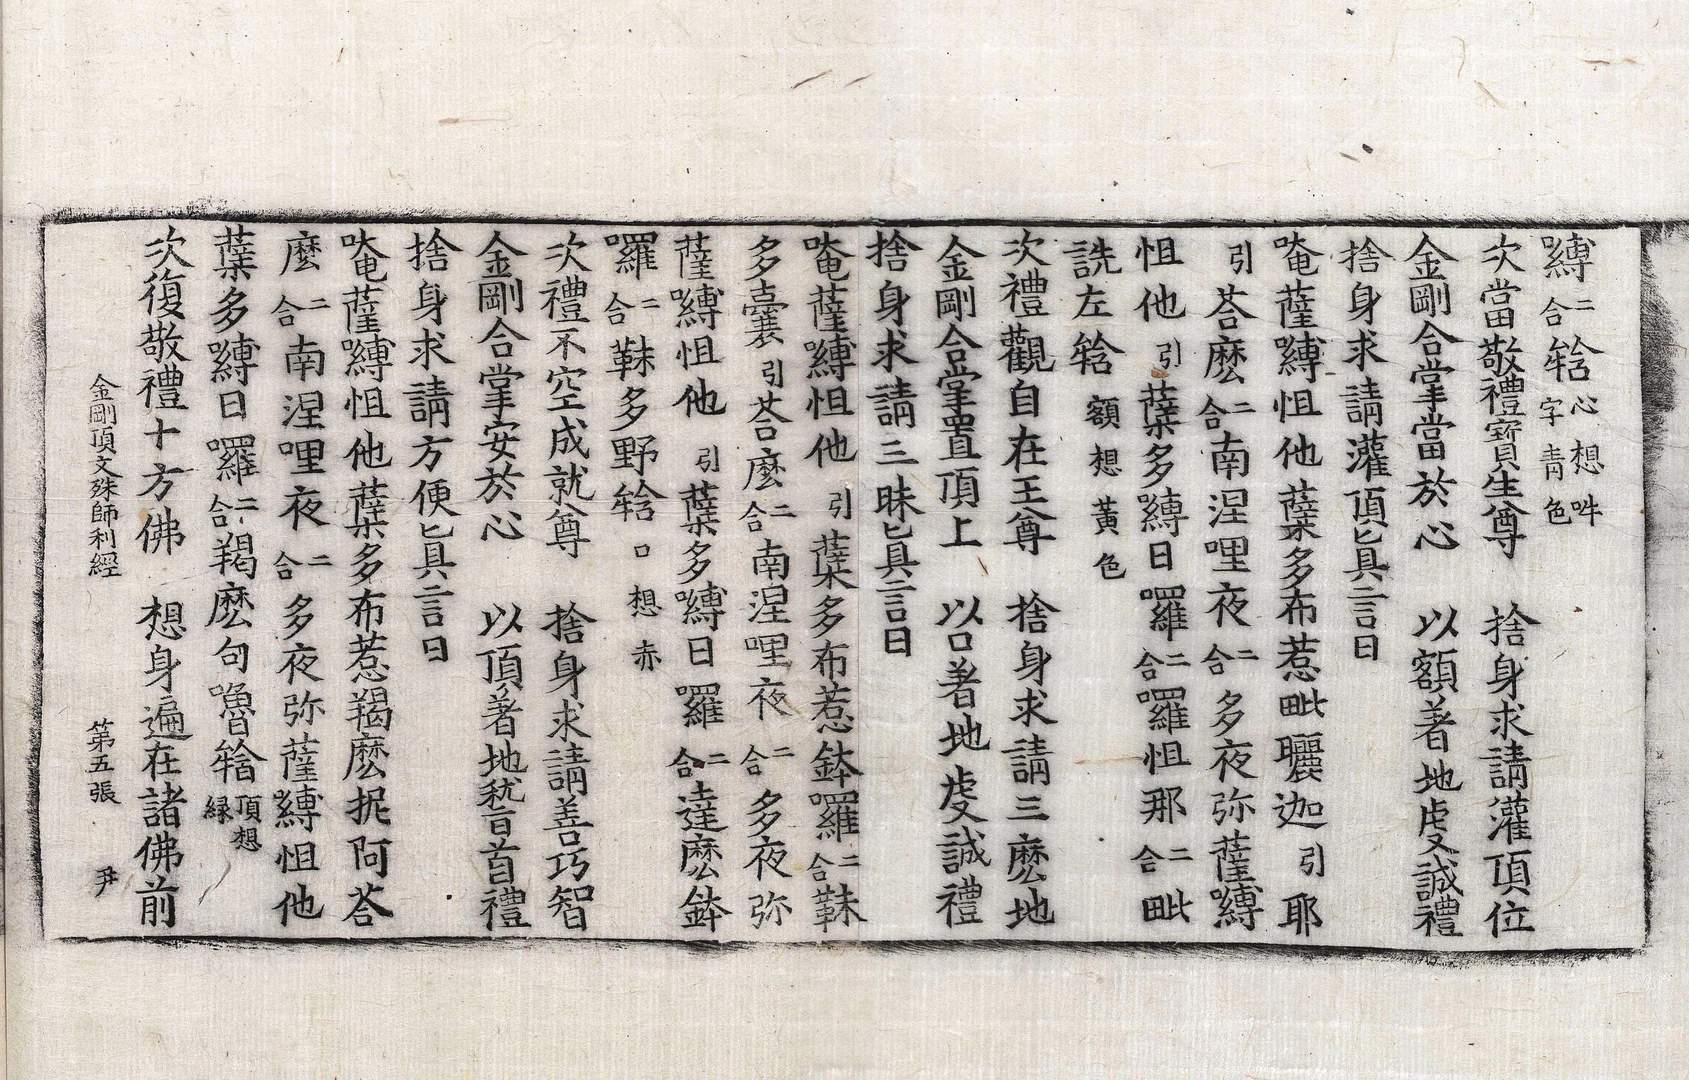 嚩二合𤙖心想吽字青色
次當敬禮寶生尊　捨身求請灌頂位
金剛合掌當於心　以額著地虔誠禮
捨身求請灌頂𠤎具言曰
唵薩嚩怛他蘖多布惹毗曬迦引耶
引荅麽二合南涅哩夜二合多夜弥薩嚩
怛他引蘖多嚩日囉二合囉怛那二合毗
詵左𤙖額想黃色
次禮觀自在王尊　捨身求請三麽地
金剛合掌置頂上　以口著地虔誠禮
捨身求請三昧𠤎具言曰
唵薩嚩怛他引蘖多布惹鉢囉二合靺
多曩引荅麽二合南涅哩夜二合多夜弥
薩嚩怛他引蘖多嚩日囉二合達麽鉢
囉二合靺多野𤙖口想赤
次禮不空成就尊　捨身求請善巧智
金剛合掌安於心　以頂著地嵇首禮
捨身求請方便𠤎具言曰
唵薩嚩怛他蘖多布惹羯麽抳阿荅
麽二合南涅哩夜二合多夜弥薩嚩怛他
蘖多嚩日囉二合羯麽句嚕𤙖頂想緑
次復敬禮十方佛　想身遍在諸佛前
金剛頂文殊師利經　第五張